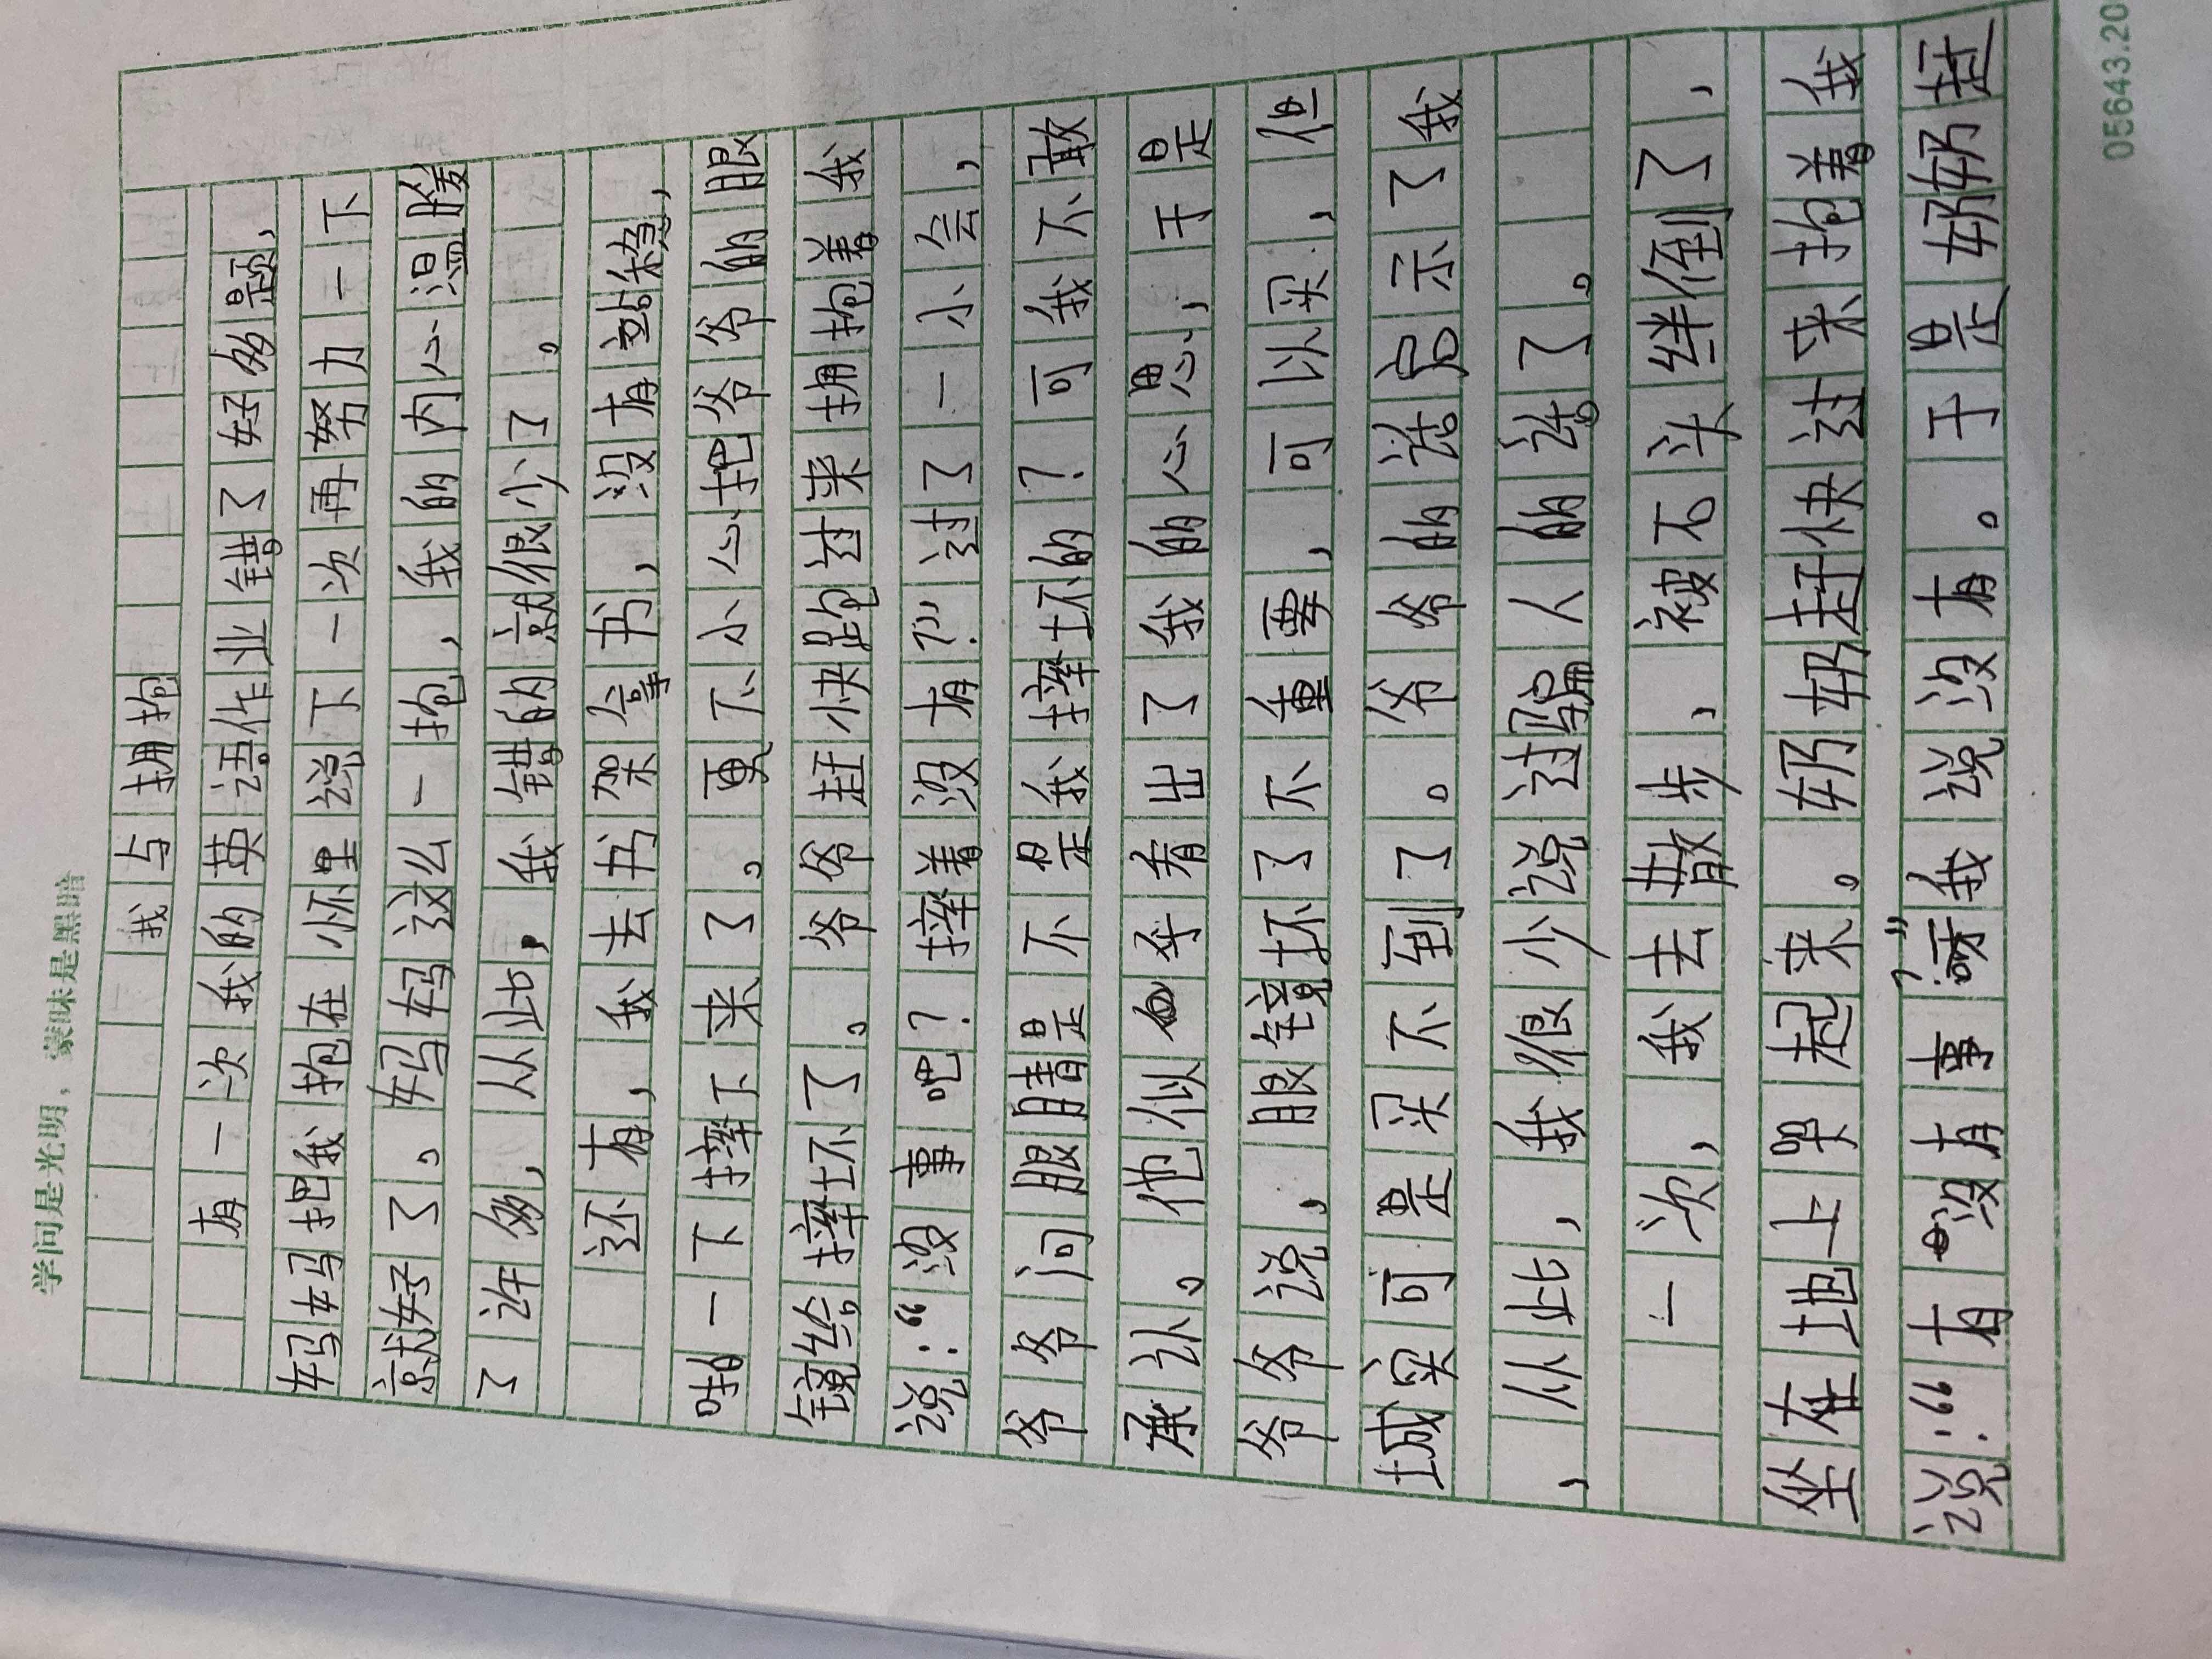 学问是光明，蒙昧是黑暗
我与拥抱
有一次我的英语作业错了好多题，
妈妈把我抱在怀里说下一次再努力一下
就好了。妈妈这么一抱，我的内心温暖
了许多，从此，我错的就很少了。
还有，我去书架拿书，没有站稳，
啪一下摔下来了。更不小心把爷爷的眼
镜给摔坏了。爷爷赶快跑过来拥抱着我
说：“没事吧？摔着没有？”过了一小会，
爷爷问眼睛是不是我摔坏的？可我不敢
承认。他似乎看出了我的心思，于是
爷爷说，眼镜坏了不重要，可以买，但
城实可是买不到了。爷爷的话启示了我
，从此，我很少说过骗人的话了。
一次，我去散步，被石头绊倒了，
坐在地上哭起来。奶奶赶快过来抱着我
说：“有没有事呀？”我说没有。于是奶奶赶
05643.20